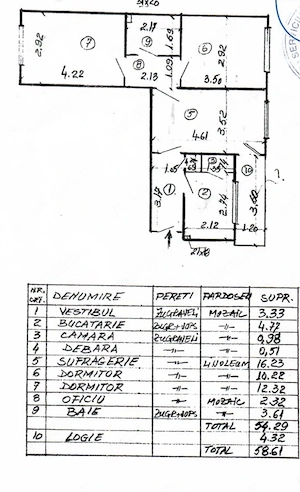 2.17
1.69
2.92
7
4.22
9
8
2.13
1.09
6
2.92
3.50
5
4.61
3.52
10
1
3.17
2
2.12
2.24
1.20
NR. CRT. DENUMIRE PERETI PARDOSELI SUPR.
1 VESTIBUL ZUGRAVELI MOZAIC 3,33
2 BUCATARIE ZUGR+VOPS -"- 4.77
3 CAMARA ZUGRAVELI -"- 0,98
4 DEBARA -"- -"- 0,51
5 SUFRAGERIE -"- LINOLEUM 16.23
6 DORMITOR -"- -"- 10.22
7 DORMITOR -"- -"- 12.32
8 OFICIU -"- MOZAIC 2.32
9 BAIE ZUGR+VOPS -"- 3.61
TOTAL 54.29
10 LOGIE 4.32
TOTAL 58.61